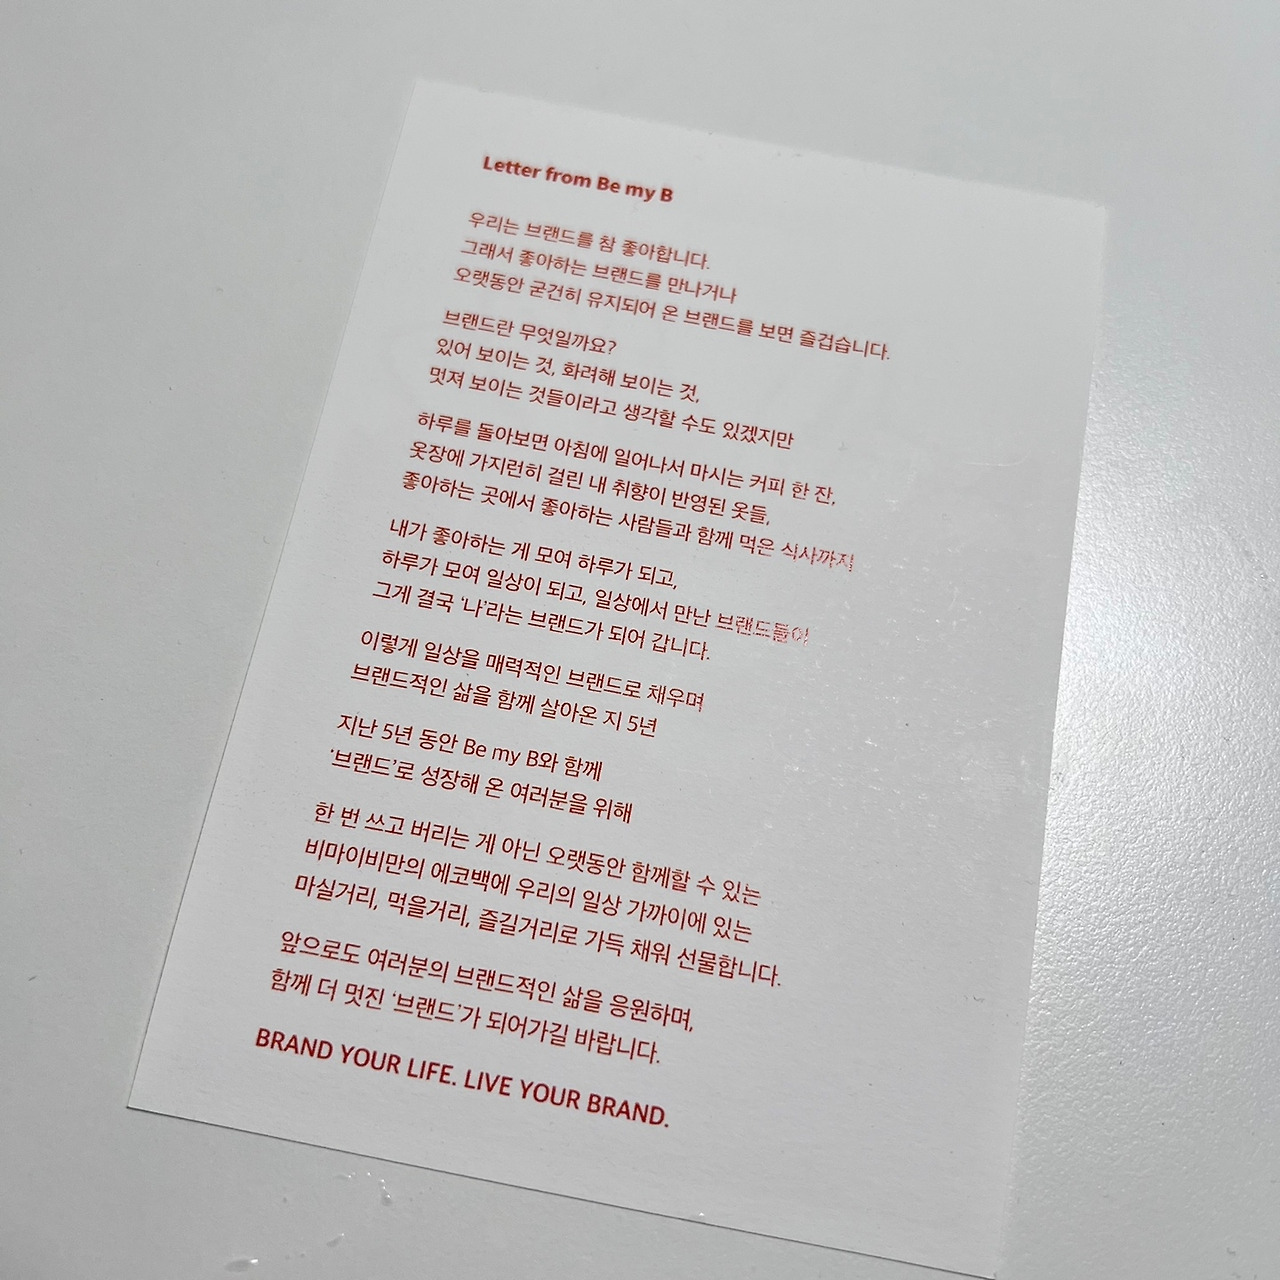 Letter from Be my B
우리는 브랜드를 참 좋아합니다.
그래서 좋아하는 브랜드를 만나거나
오랫동안 굳건히 유지되어 온 브랜드를 보면 즐겁습니다.
브랜드란 무엇일까요?
있어 보이는 것, 화려해 보이는 것,
멋져 보이는 것들이라고 생각할 수도 있겠지만
하루를 돌아보면 아침에 일어나서 마시는 커피 한 잔,
옷장에 가지런히 걸린 내 취향이 반영된 옷들,
좋아하는 곳에서 좋아하는 사람들과 함께 먹은 식사까지
내가 좋아하는 게 모여 하루가 되고,
하루가 모여 일상이 되고, 일상에서 만난 브랜드들이
그게 결국 '나'라는 브랜드가 되어 갑니다.
이렇게 일상을 매력적인 브랜드로 채우며
브랜드적인 삶을 함께 살아온 지 5년
지난 5년 동안 Be my B와 함께
'브랜드'로 성장해 온 여러분을 위해
한 번 쓰고 버리는 게 아닌 오랫동안 함께할 수 있는
비마이비만의 에코백에 우리의 일상 가까이에 있는
마실거리, 먹을거리, 즐길거리로 가득 채워 선물합니다.
앞으로도 여러분의 브랜드적인 삶을 응원하며,
함께 더 멋진 '브랜드'가 되어가길 바랍니다.
BRAND YOUR LIFE. LIVE YOUR BRAND.